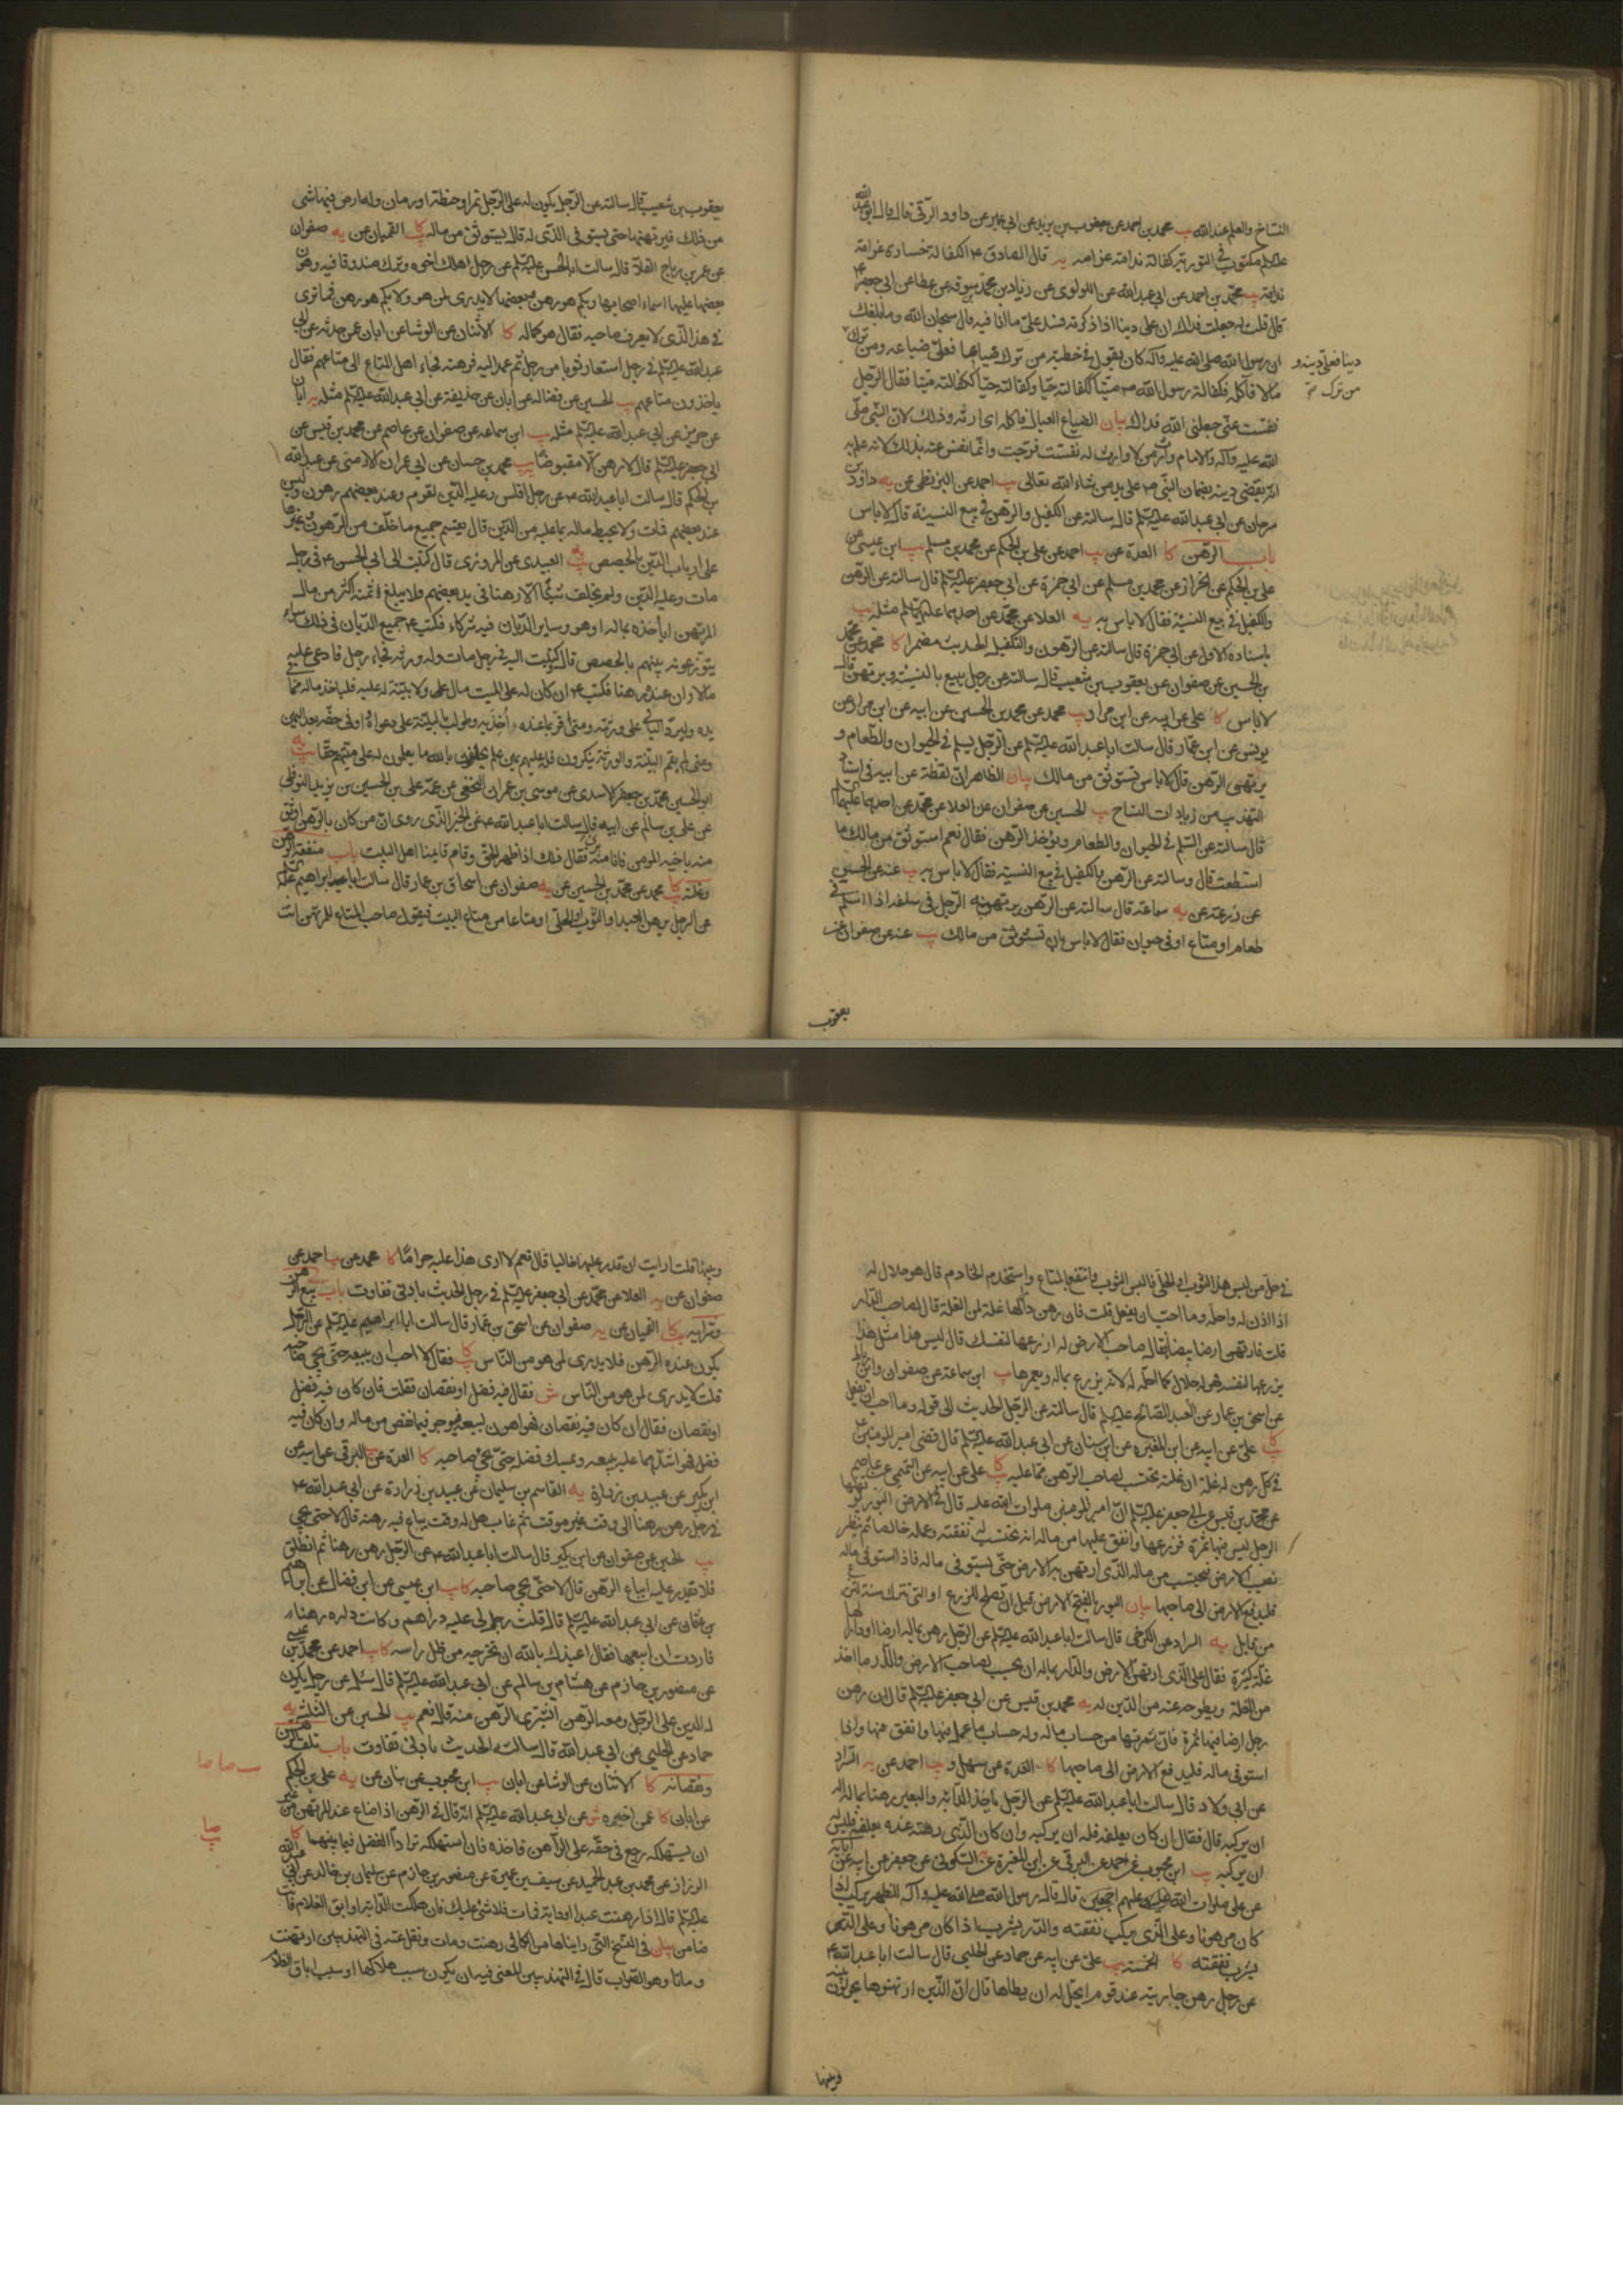 النساخ والعلم عند الله يب محمد بن احمد عن يعقوب بن يزيد عن ابي عمير عن داود الرقي قال قال ابو عبد الله
مكتوب في التورية كفالة ندامة غرامة يه قال الصادق ع الكفالة خسارة غرامة
ندامة يب محمد بن احمد عن ابي عبد الله عن اللولوى عن زياد بن محمد بن سوقه عن عطا عن ابي جعفر ع
قال قلت له جعلت فداك ان على دينا اذا ذكرته فسد علي ما انا فيه قال سبحان الله وما بلغك
ان رسول الله صلى الله عليه واله كان يقول في خطبته من ترك ضياعا فعلي ضياعه ومن ترك
دينا فعلي دينه و
من ترك
مالا فآكله فكفالة رسول الله ص ميتا ككفالته حيا وكفالته حيا ككفالته ميتا فقال الرجل
نفست عني جعلني الله فداك بيان الضياع العيال فآكله اى ارثه وذلك لان النبي صلى
الله عليه وآله والامام وارث من لا وارث له نفست فرجت وانما نفس عنه بذلك لانه علم به
انه يقضى دينه بضمان النبي ص على يد من شاء الله تعالى يب احمد عن البزنطي عن يه داود بن
سرحان عن ابي عبد الله عليه السلم قال سالته عن الكفيل والرهن في بيع النسيئة قال لا باس
باب الرهن كا العدة عن يب احمد عن علي بن الحكم عن محمد بن مسلم يب ابن عيسى عن
علي بن الحكم عن الخراز عن محمد بن مسلم عن ابي حمزة عن ابي جعفر عليه السلم قال سالته عن الرهن
والكفيل في بيع النسيئة فقال لا باس به يه العلا عن محمد عن احدهما عليهما السلم مثله يب
باسناده الاول عن ابي حمزة قال سالته عن الرهون والكفيل الحديث مضمرا كا محمد عن محمد
بن الحسين عن صفوان عن يعقوب بن شعيب قال سالته عن رجل يبيع بالنسيئة ويرتهن قال
لا باس كا علي عن ابيه عن ابن مرار يب محمد عن محمد بن الحسين عن ابيه عن ابن مرار عن
يونس عن ابن عمار قال سالت ابا عبد الله عليه السلم عن الرجل يسلم في الحيوان والطعام و
يرتهن الرهن قال لا باس تستوثق من مالك بيان الظاهر ان لفظة عن ابيه في اسناد
التهذيب من زيادات النساخ يب الحسين عن صفوان عن العلا عن محمد عن احدهما عليهما السلم
قال سالته عن السلم في الحيوان والطعام ويؤخذ الرهن فقال نعم استوثق من مالك ما
استطعت قال وسالته عن الرهن والكفيل في بيع النسيئة فقال لا باس به يب عنه عن الحسن
عن زرعة عن يه سماعة قال سالته عن الرهن يرتهنه الرجل في سلفه اذا اسلم في
طعام او متاع او في حيوان فقال لا باس بان تستوثق من مالك يب عنه عن صفوان عن
يعقوب
يعقوب بن شعيب قال سالته عن الرجل يكون له على الرجل تمر او حنطة او رمان وله ارض فيها شئ
من ذلك فيرتهنها حتى يستوفى الذى له قال يستوثق من ماله كا القميان عن يه صفوان
عن عمر بن رباح القلا قال سالت ابا الحسن عليه السلم عن رجل هلك اخوه وترك صندوقا فيه رهون
بعضها عليها اسماء اصحابها وبكم هو رهن وبعضها لا يدرى لمن هو ولا بكم هو رهن فما ترى
في هذا الذى لا يعرف صاحبه فقال هو كماله كا الاثنان عن الوشا عن ابان عمن حدثه عن ابي
عبد الله عليه السلم في رجل استعار ثوبا من رجل ثم عمد اليه فرهنه فجاء اهل المتاع الى متاعهم فقال
ياخذون متاعهم يب الحسين عن فضالة عن ابان عن حذيفة عن ابي عبد الله عليه السلم مثله يه ابان
عن حريز عن ابي عبد الله عليه السلم مثله يب ابن سماعه عن صفوان عن عاصم عن محمد بن قيس عن
ابي جعفر عليه السلم قال لا رهن الا مقبوضا يب محمد بن حسان عن ابي عمران الارمني عن عبد الله
بن الحكم قال سالت ابا عبد الله ع عن رجل افلس وعليه الدين لقوم وعند بعضهم رهون وليس
عند بعضهم فمات ولا يحيط ماله بما عليه من الدين قال يقسم جميع ما خلف من الرهون وغيرها
على ارباب الدين بالحصص يب يه العبيدى عن المروزى قال كتبت الى ابي الحسن ع في رجل
مات وعليه الدين ولم يخلف شيئا الا رهنا في يد بعضهم فلا يبلغ ثمنه اكثر من مال
المرتهن ايأخذه بماله او هو وساير الديان فيه شركاء فكتب ع جميع الديان في ذلك سواء
يتوزعونه بينهم بالحصص قال وكتبت اليه في رجل مات وله ورثة فجاء رجل فادعى عليه
مالا وان عنده رهنا فكتب ع ان كان له على الميت مال ولا بينة له عليه فلياخذ ماله مما
يده وليرد الباقي على ورثته ومتى اقر بما عنده أخذ به وطولب بالبينة على دعواه واوفى حقه بعد اليمين
ومتى لم يقم البينة والورثة ينكرون فله عليهم يمين علم يحلفون بالله ما يعلمون له على ميتهم حقا يب يه
ابو الحسين محمد بن جعفر الاسدى عن موسى بن عمران النخعي عن عمه علي بن الحسين بن يزيد النوفلي
عن علي بن سالم عن ابيه قال سالت ابا عبد الله ع عن الخبر الذى روى ان من كان بالرهن اوثق
منه باخيه المومن فانا منه برئ فقال ذلك اذا ظهر الحق وقام قايمنا اهل البيت باب منفعة الرهن
وغلته كا محمد عن محمد بن الحسين عن يه صفوان عن اسحاق بن عمار قال سالت ابا ابراهيم عليه السلم
عن الرجل يرهن العبد او الثوب او الحلي او متاعا من متاع البيت فيقول صاحب المتاع للمرتهن انت
في حل من لبس هذا الثوب او الحلي فالبس الثوب وانتفع بالمتاع واستخدم الخادم قال هو حلال له
اذا اذن له واحله وما احب ان يفعل قلت فان رهن دارا لها غلة لمن الغلة قال لصاحب الدار
قلت فارتهن ارضا بيضا فقال صاحب الارض له ازرعها لنفسك قال ليس هذا مثل هذا
يزرعها لنفسه فهو له حلال كما احله له لانه يزرع بماله ويعمرها يب ابن سماعة عن صفوان وابن رباط
عن اسحق بن عمار عن العبد الصالح عليه السلم قال سالته عن الرجل الحديث الى قوله وما احب ان يفعل
كا يب علي عن ابيه عن ابن المغيرة عن ابن سنان عن ابي عبد الله عليه السلم قال قضى امير المومنين ع
في كل رهن له غلة ان غلته تحتسب لصاحب الرهن مما عليه كا يب علي عن ابيه عن التميمي عن عاصم
عن محمد بن قيس عن ابي جعفر عليه السلم ان امير المومنين صلوات الله عليه قال في الارض البور يرتهنها
الرجل ليس فيها ثمرة فزرعها وانفق عليها من ماله انه يحتسب له نفقته وعمله خالصا ثم ينظر
نصيب الارض فيحتسب من ماله الذى ارتهن به الارض حتى يستوفى ماله فاذا استوفى ماله
فليدفع الارض الى صاحبها بيان البور بالفتح الارض قبل ان تصلح للزرع او التي تترك سنة لتزرع
من قابل يه السراد عن الكرخي قال سالت ابا عبد الله عليه السلم عن الرجل رهن بماله ارضا او دارا لها
غلة كثيرة فقال على الذى ارتهن الارض والدار بماله ان يحسب لصاحب الارض والدار ما اخذ
من الغلة ويطرحه عنه من الدين له يه محمد بن قيس عن ابي جعفر عليه السلم قال ان رهن
رجل ارضا فيها ثمرة فان ثمرتها من حساب ماله وله حساب ما عمل فيها وانفق منها واذا
استوفى ماله فليدفع الارض الى صاحبها كا العدة عن سهل و يب احمد عن يه السراد
عن ابي ولاد قال سالت ابا عبد الله عليه السلم عن الرجل ياخذ الدابة والبعير رهنا بماله اله
ان يركبه قال فقال ان كان يعلفه فله ان يركبه وان كان الذى رهنه عنده يعلفه فليس له
ان يركبه يب ابن محبوب عن احمد عن البرقي عن ابن المغيرة عن يه السكوني عن جعفر عن ابيه عن آبائه
عن علي صلوات الله عليهم اجمعين قال قال رسول الله صلى الله عليه وآله الظهر يركب اذا
كان مرهونا وعلى الذى يركب نفقته والدر يشرب اذا كان مرهونا وعلى الذى
يشرب نفقته كا الخمسة يب علي عن ابيه عن حماد عن الحلبي قال سالت ابا عبد الله ع
عن رجل رهن جاريته عند قوم ايحل له ان يطاها قال ان الذين ارتهنوها يحولون بينه
وبينها
وبينها قلت ارايت ان قدر عليها خاليا قال نعم لا ارى هذا عليه حراما كا محمد عن يب احمد عن
صفوان عن يه العلا عن محمد عن ابي جعفر عليه السلم في رجل الحديث بادنى تفاوت باب بيع الرهن
وشرايه يب كا القميان عن يه صفوان عن اسحق بن عمار قال سالت ابا ابراهيم عليه السلم عن الرجل
يكون عنده الرهن فلا يدرى لمن هو من الناس كا يب فقال لا احب ان يبيعه حتى يجئ صاحبه
قلت لا يدرى لمن هو من الناس ش فقال فيه فضل او نقصان فقلت فان كان فيه فضل
او نقصان فقال ان كان فيه نقصان فهو اهون لبيعه فيوجر فيما نقص من ماله وان كان فيه
فضل فهو اشدهما عليه يبيعه ويمسك فضله حتى يجئ صاحبه كا العدة عن البرقي عن ابيه عن
ابن بكير عن عبيد بن زرارة يه القاسم بن سليمان عن عبيد بن زرارة عن ابي عبد الله ع
في رجل رهن رهنا الى وقت غير موقت ثم غاب هل له وقت يباع فيه رهنه قال لا حتى يجئ
يب الحسين عن صفوان عن ابن بكير قال سالت ابا عبد الله ع عن الرجل رهن رهنا ثم انطلق
فلا تقدر عليه ايباع الرهن قال لا حتى يجئ صاحبه كا يب ابن عيسى عن ابن فضال عن ابراهيم
بن عثمان عن ابي عبد الله عليه السلم قال قلت رجل لي عليه دراهم وكانت داره رهنا
فاردت ان ابيعها فقال اعيذك بالله ان تخرجه من ظل راسه كا يب احمد عن محمد بن عيسى
عن منصور بن حازم عن هشام بن سالم عن ابي عبد الله عليه السلم قال سئل عن رجل يكون
له الدين على الرجل ومعه الرهن ايشترى الرهن منه قال نعم يب الحسين عن الثلثة يه
حماد عن الحلبي عن ابي عبد الله قال سالته الحديث بادنى تفاوت باب تلف الرهن
ونقصانه كا الاثنان عن الوشا عن ابان يب ابن محبوب عن بنان عن يه علي بن الحكم
عن ابان كا عمن اخبره ش عن ابي عبد الله عليه السلم انه قال في الرهن اذا ضاع عند المرتهن من غير
ان يستهلكه رجع في حقه على الراهن فاخذه فان استهلكه ترادا الفضل فيما بينهما كا
الرزاز عن محمد بن عبد الحميد عن سيف بن عميرة عن منصور بن حازم عن سليمان بن خالد عن ابي عبد الله
عليه السلم قال اذا رهنت عبدا او دابة فمات فلا شئ عليك فان هلكت الدابة او ابق الغلام فانت
ضامن بيان في النسخ التي رايناها من الكافي رهنت ومات ونقل عنه في التهذيبين ارتهنت
وماتا وهو الصواب قال في التهذيبين المعنى فيه ان يكون سبب هلاكها او سبب اباق الغلام